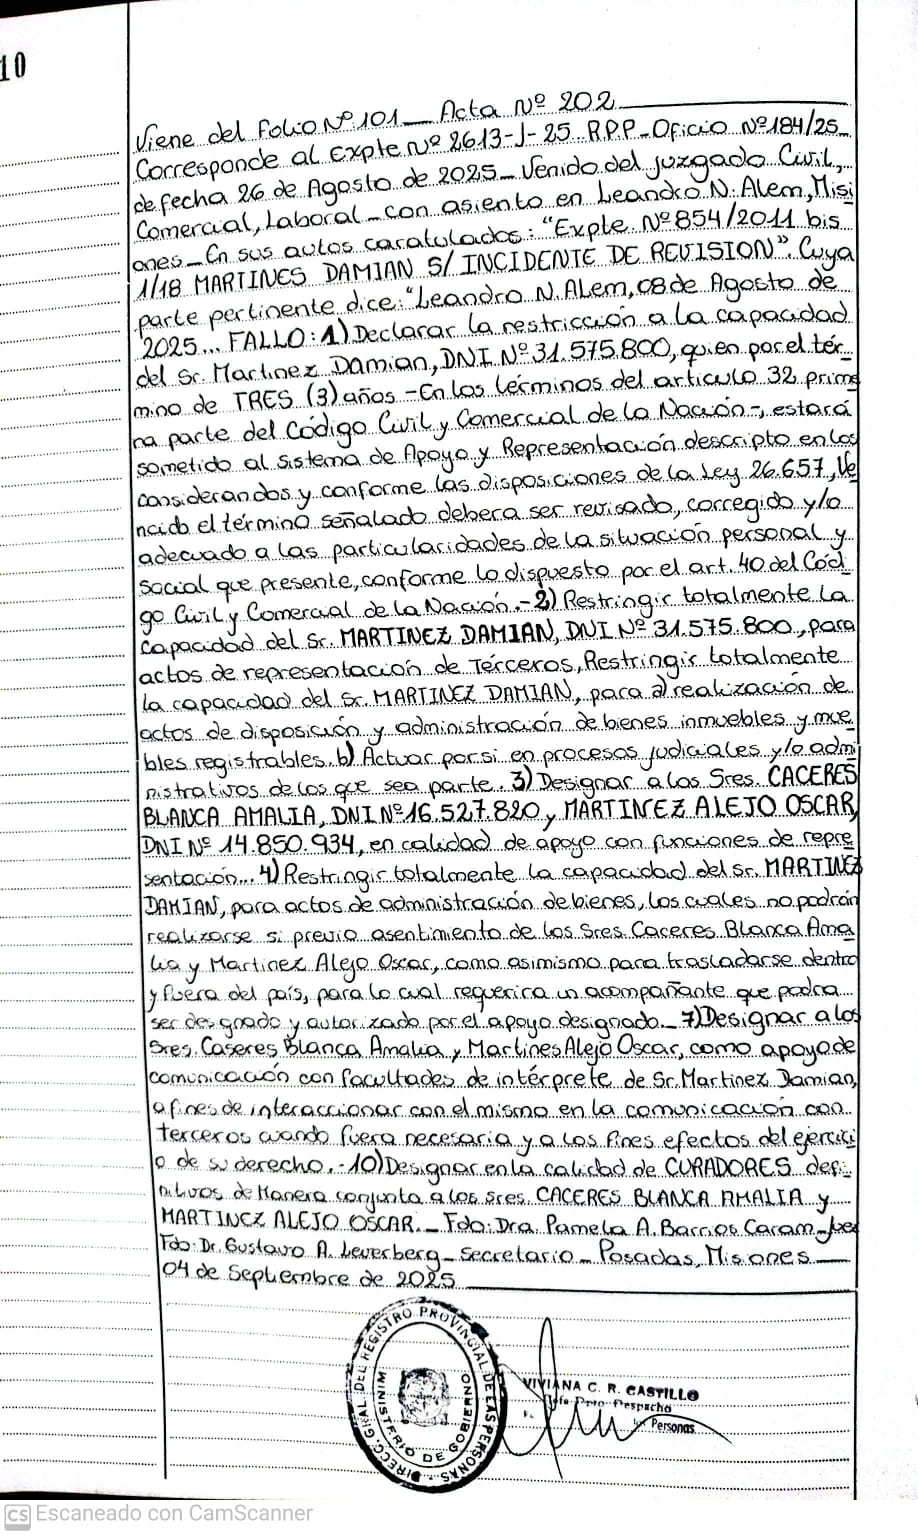 10
Viene del Folio Nº 101 _ Acta Nº 202
Corresponde al Expte Nº 2613-J-25 R.P.P_Oficio Nº 184/25_
de fecha 26 de Agosto de 2025_ Venido del Juzgado Civil,
Comercial, Laboral_con asiento en Leandro N. Alem, Misi
ones_En sus autos caratulados: "Expte. Nº 854/2011 bis
1/18 MARTINES DAMIAN S/ INCIDENTE DE REVISION". Cuya
parte pertinente dice: "Leandro N. Alem, 08 de Agosto de
2025... FALLO: 1) Declarar la restricción a la capacidad
del Sr. Martinez Damian, DNI Nº 31.575.800, quien por el tér_
mino de TRES (3) años -En los términos del articulo 32 prime
na parte del Código Civil y Comercial de la Nación-, estará
sometido al sistema de Apoyo y Representación descripto en los
considerandos y conforme las disposiciones de la Ley 26.657, Ve
ncido el término señalado debera ser revisado, corregido y/o
adecuado a las particularidades de la situación personal y
social que presente, conforme lo dispuesto por el art. 40 del Códi
go Civil y Comercial de la Nación.-2) Restringir totalmente la
capacidad del Sr. MARTINEZ DAMIAN, DNI Nº 31.575.800, para
actos de representación de Térceros, Restringir totalmente
la capacidad del Sr. MARTINEZ DAMIAN, para a) realización de
actos de disposición y administración de bienes inmuebles y mue
bles registrables. b) Actuar por si en procesos judiciales y/o admi
nistrativos de los que sea parte. 3) Designar a los Sres. CACERES
BLANCA AMALIA, DNI Nº 16.527.820 y MARTINEZ ALEJO OSCAR,
DNI Nº 14.850.934, en calidad de apoyo con funciones de repre
sentación... 4) Restringir totalmente la capacidad del Sr. MARTINEZ
DAMIAN, para actos de administración de bienes, los cuales no podrán
realizarse si previo asentimento de los Sres. Caceres Blanca Ama
lia y Martinez Alejo Oscar, como asimismo para trasladarse dentro
y fuera del país, para lo cual requerira un acompañante que podra
ser designado y autorizado por el apoyo designado._ 7) Designar a los
Sres. Caseres Blanca Amalia y Martines Alejo Oscar, como apoyo de
comunicación con facultades de intérprete de Sr. Martinez Damian,
a fines de interaccionar con el mismo en la comunicación con
terceros cuando fuera necesaria y a los fines efectos del ejercici
o de su derecho.-10) Designar en la calidad de CURADORES defi_
nitivos de Manera conjunta a los Sres. CACERES BLANCA AMALIA y
MARTINEZ ALEJO OSCAR._ Fdo: Dra. Pamela A. Barrios Caram_Juez
Fdo: Dr. Gustavo A. Leverberg_Secretario_Posadas, Misiones
04 de Septiembre de 2025
DIRECC. GRAL. DEL REGISTRO PROVINCIAL DE LAS PERSONAS
MINISTERIO DE GOBIERNO
VIVIANA C. R. CASTILLO
Jefe Dpto Despacho
Personas
CS Escaneado con CamScanner